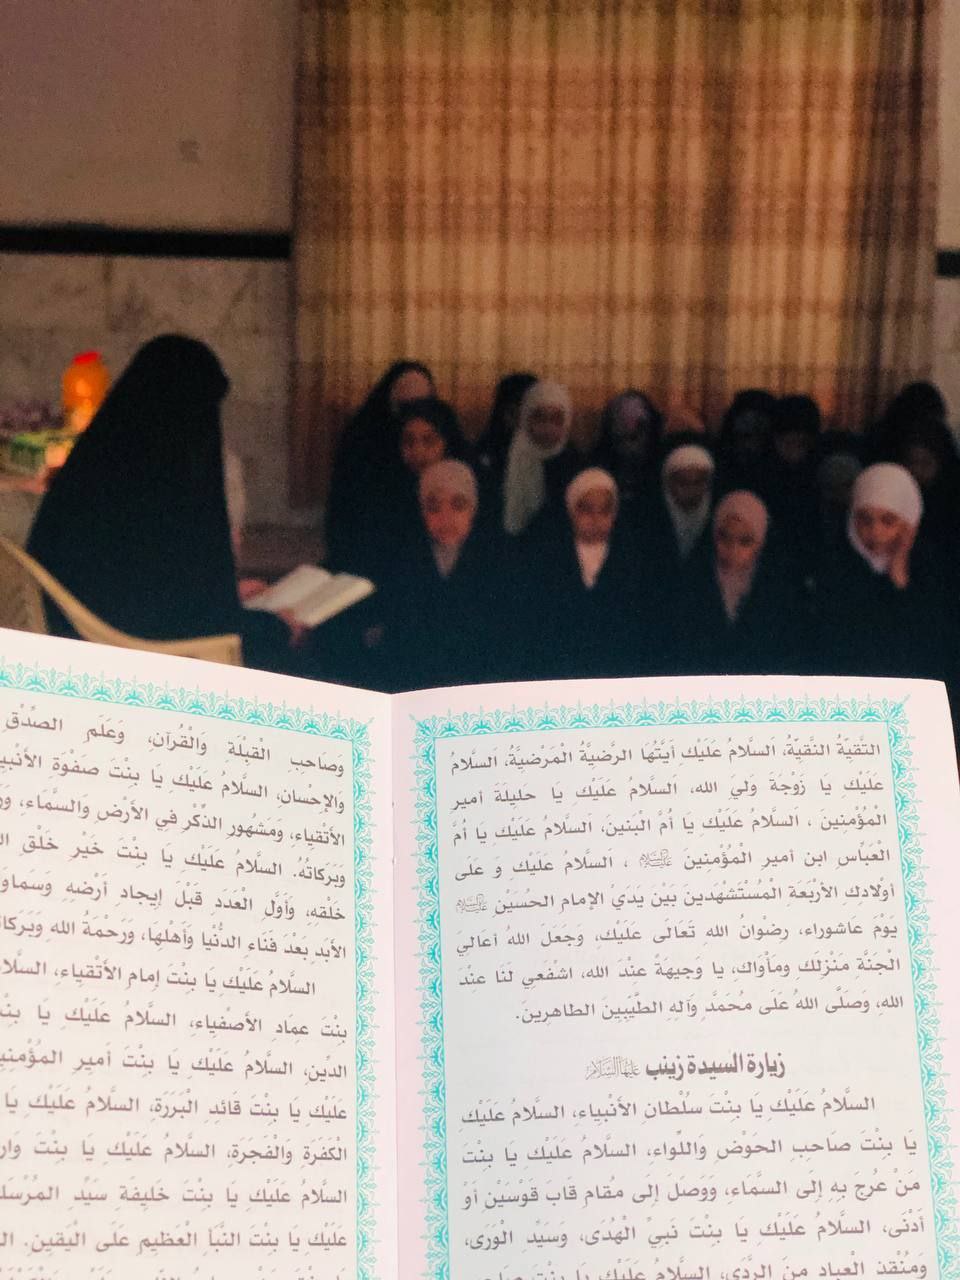 التَّقيَّةُ النقيَّةُ، اَلسَّلامُ عَلَيْكِ أيَتُّهَا الرَضيَّةُ الْمَرْضيَّةُ، اَلسَّلامُ
عَلَيْكِ يَا زَوْجَةَ وَليَ الله، اَلسَّلامُ عَلَيْكِ يَا حليلةَ أمير
الْمؤْمنين ، السَّلامُ عَلَيْكِ يا أُمَّ البَنينَ، اَلسَّلامُ عَلَيْكِ يَا أُمَّ
الْعَبّاسِ ابن أمير المُؤْمنين عليه السلام ، السَّلامُ عَلَيْكِ و عَلى
أوْلادك الأرْبعَة الْمُسْتَشْهَدينَ بَيْنَ يَديْ الإمام الحُسَيْنِ عليه السلام
يَوْمَ عاشوراء، رضْوانُ الله تَعَالَى عَلَيْكِ، وَجَعَلَ اللهُ أعاليَ
الجَنَّة مَنْزِلَكِ ومَأْوَاكِ، يا وَجيهَةً عِنْدَ الله، اشْفَعي لَنَا عِنْدَ
الله، وَصَلَّى اللهُ عَلَى مُحَمَّدٍ وَآلِهِ الطَّيِّبينَ الطاهرينَ.
زيارة السيدة زينب عليها السلام
السَّلامُ عَلَيْكِ يَا بنْتَ سُلْطانِ الأنْبياءِ، السَّلامُ عَلَيْكِ
يا بِنْتَ صاحِبِ الحَوْضِ وَاللِّواءِ، السلامُ عَلَيْكِ يا بِنْتَ
مَنْ عُرِجَ بِهِ إلى السَّماءِ، وَوَصَلَ إلى مُقامِ قَابَ قَوْسَيْن أوْ
أدْنَى، السَّلامُ عَلَيْكِ يَا بِنْتَ نَبيِّ الْهُدَى، وَسَيِّدِ الْوَرَى،
وَمُنْقذ العبادِ مِنَ الرَّدَى، السَّلامُ عَلَيْكِ يا بنْتَ
وَصَاحِبِ القْبلَة وَالْقُرآن، وَعَلَم الصِّدْقِ
والإحْسان، السَّلامُ عليْك يا بنْتَ صفْوَةِ
الأتْقياءِ، ومَشْهُور الذِّكْر في الأرْضِ والسَّماءِ،
وبَرَكاتُهُ. السَّلامُ عليْكِ يا بنْتَ خَيْر خَلْقِ
خَلْقِهِ، وَأوَّلِ الْعَدَدِ قَبْلَ إيجاد أرْضِهِ
الأبَدِ بَعْدَ فَناءِ الدُّنْيا وَأهْلها، وَرَحْمَةُ اللهِ
السَّلامُ عَلَيْكِ يَا بنْتَ إمام الأتْقياءِ،
بنْتَ عِمادِ الأصْفِياءِ، السَّلامُ عَلَيْكِ يا
الدِّين، السَّلامُ عَلَيْكِ يا بنْتَ أمير
عَلَيْكِ يَا بنْتَ قَائِدِ الْبَرَرَةِ، السَّلامُ عَلَيْكِ يَا
الْكَفَرَةِ وَالْفَجَرَةِ، السَّلامُ عَلَيْكِ يَا بنْتَ
السَّلامُ عَلَيْكِ يَا بنْتَ خَليفَة سَيِّدِ
عَلَيْكِ يا بنْتَ النَّبَأِ الْعَظيم عَلَى الْيَقين.